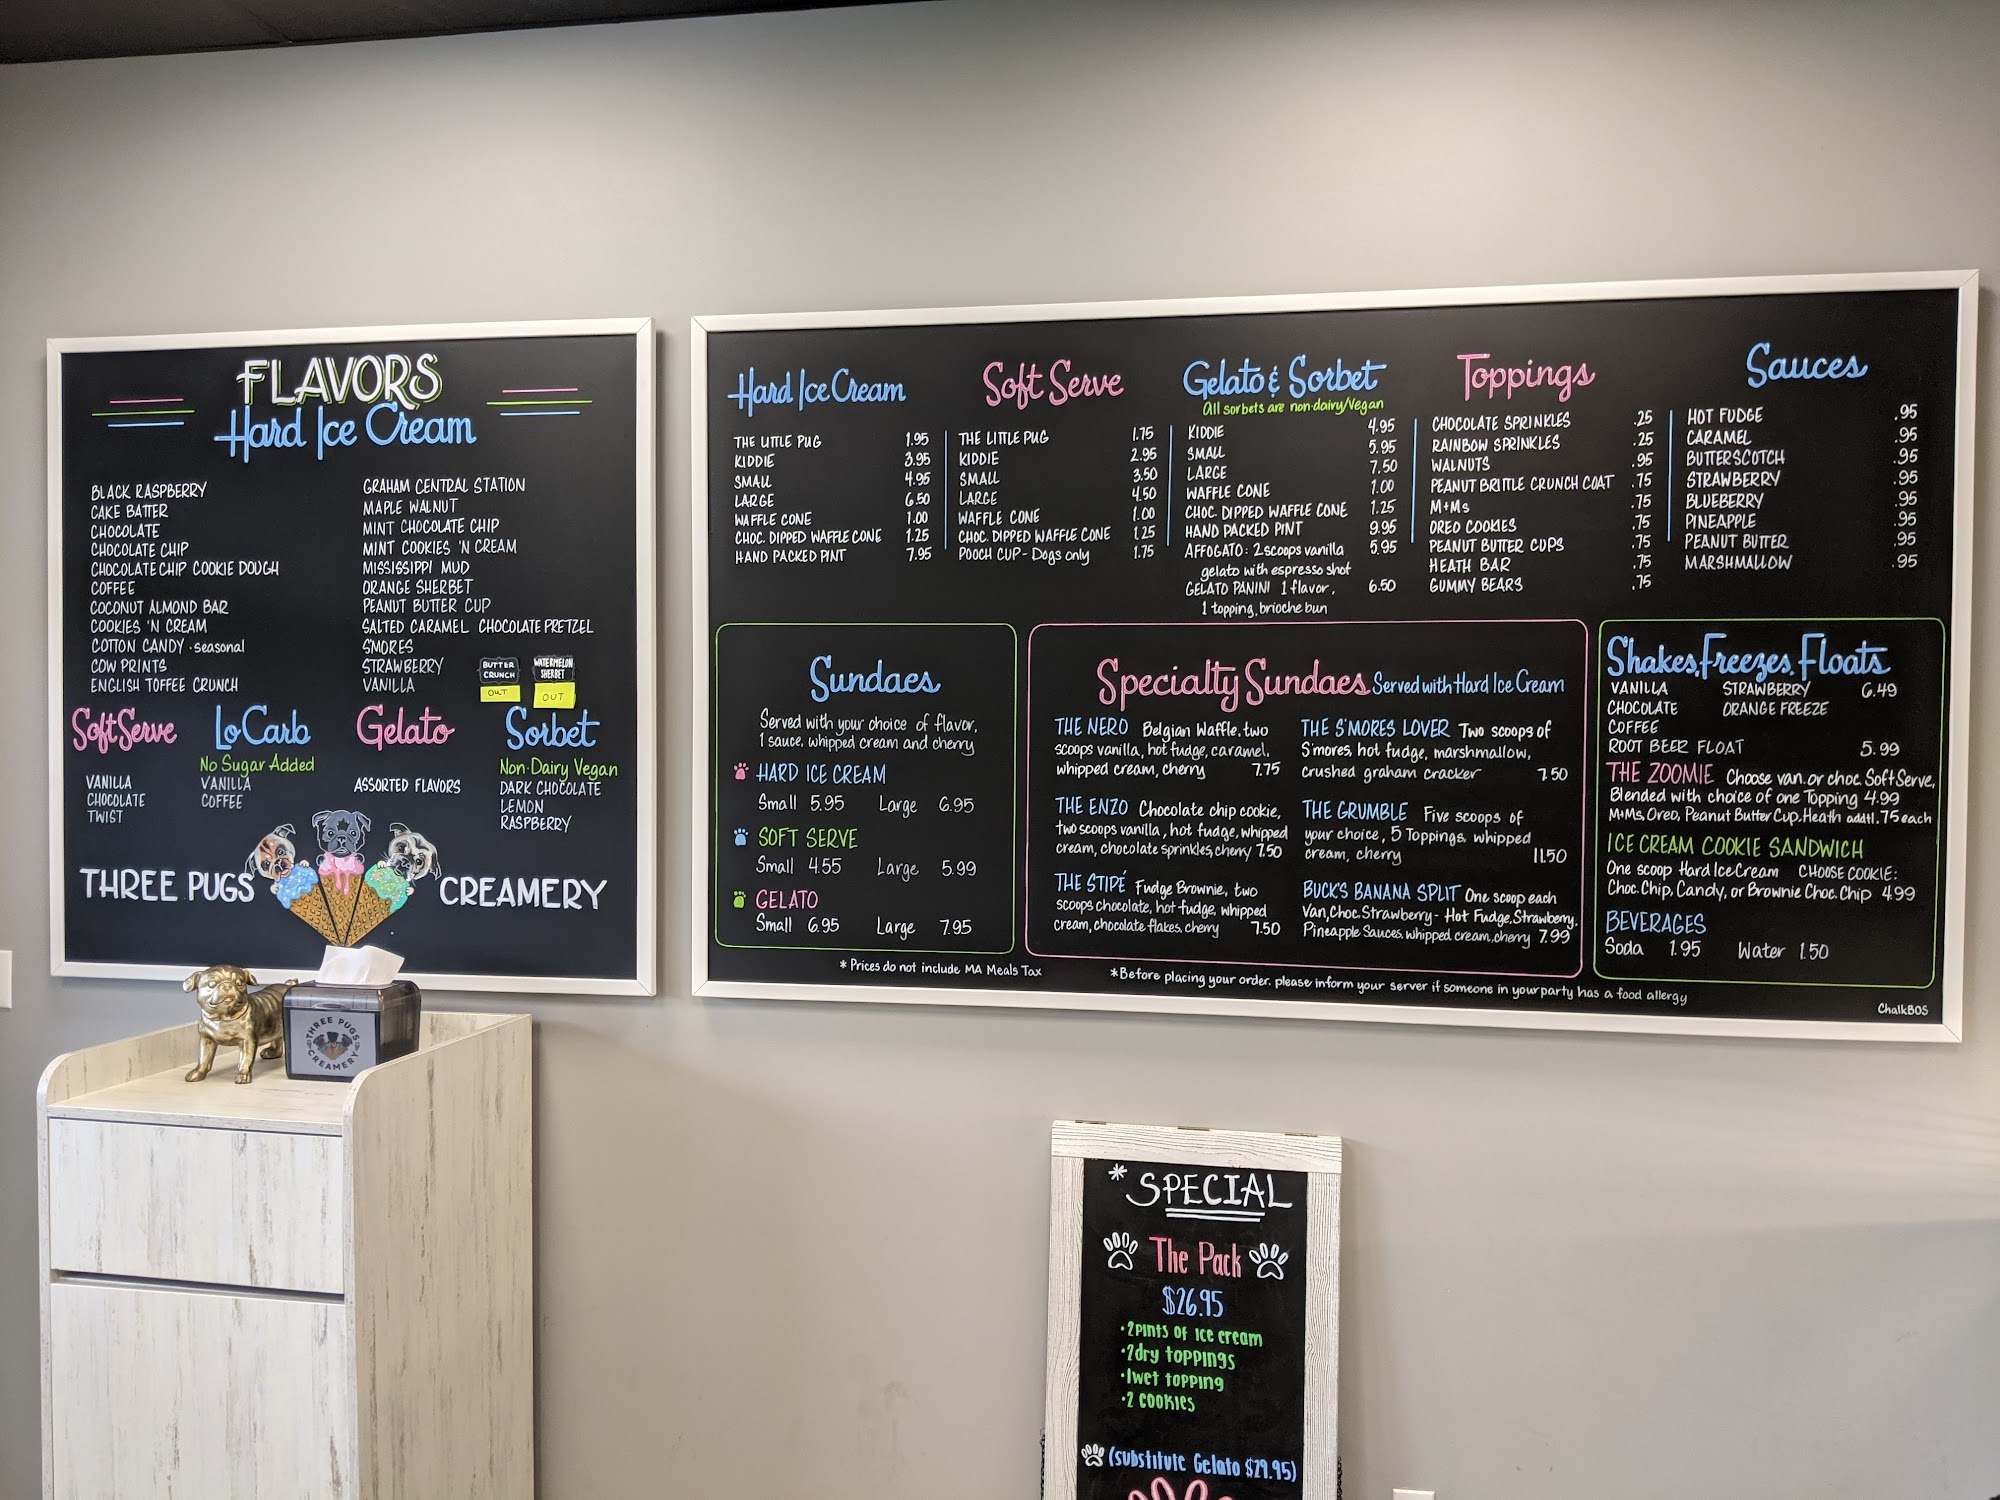 FLAVORS
Hard Ice Cream
BLACK RASPBERRY
CAKE BATTER
CHOCOLATE
CHOCOLATE CHIP
CHOCOLATE CHIP COOKIE DOUGH
COFFEE
COCONUT ALMOND BAR
COOKIES 'N CREAM
COTTON CANDY · seasonal
COW PRINTS
ENGLISH TOFFEE CRUNCH
GRAHAM CENTRAL STATION
MAPLE WALNUT
MINT CHOCOLATE CHIP
MINT COOKIES 'N CREAM
MISSISSIPPI MUD
ORANGE SHERBET
PEANUT BUTTER CUP
SALTED CARAMEL CHOCOLATE PRETZEL
S'MORES
STRAWBERRY
VANILLA
BUTTER
CRUNCH
OUT
WATERMELON
SHERBET
OUT
Soft Serve
VANILLA
CHOCOLATE
TWIST
Lo Carb
No Sugar Added
VANILLA
COFFEE
Gelato
ASSORTED FLAVORS
Sorbet
Non-Dairy Vegan
DARK CHOCOLATE
LEMON
RASPBERRY
THREE PUGS CREAMERY
THREE PUGS
CREAMERY
Hard Ice Cream
THE LITTLE PUG 1.95
KIDDIE 3.95
SMALL 4.95
LARGE 6.50
WAFFLE CONE 1.00
CHOC. DIPPED WAFFLE CONE 1.25
HAND PACKED PINT 7.95
Soft Serve
THE LITTLE PUG 1.75
KIDDIE 2.95
SMALL 3.50
LARGE 4.50
WAFFLE CONE 1.00
CHOC. DIPPED WAFFLE CONE 1.25
POOCH CUP - Dogs only 1.75
Gelato & Sorbet
All sorbets are non-dairy/Vegan
KIDDIE 4.95
SMALL 5.95
LARGE 7.50
WAFFLE CONE 1.00
CHOC DIPPED WAFFLE CONE 1.25
HAND PACKED PINT 9.95
AFFOGATO: 2 scoops vanilla 5.95
gelato with espresso shot
GELATO PANINI 1 flavor, 6.50
1 topping, brioche bun
Toppings
CHOCOLATE SPRINKLES .25
RAINBOW SPRINKLES .25
WALNUTS .95
PEANUT BRITTLE CRUNCH COAT .75
M+Ms .75
OREO COOKIES .75
PEANUT BUTTER CUPS .75
HEATH BAR .75
GUMMY BEARS .75
Sauces
HOT FUDGE .95
CARAMEL .95
BUTTERSCOTCH .95
STRAWBERRY .95
BLUEBERRY .95
PINEAPPLE .95
PEANUT BUTTER .95
MARSHMALLOW .95
Sundaes
Served with your choice of flavor,
1 sauce, whipped cream and cherry
HARD ICE CREAM
Small 5.95 Large 6.95
SOFT SERVE
Small 4.55 Large 5.99
GELATO
Small 6.95 Large 7.95
Specialty Sundaes Served with Hard Ice Cream
THE NERO Belgian Waffle, two
scoops vanilla, hot fudge, caramel,
whipped cream, cherry 7.75
THE ENZO Chocolate chip cookie,
two scoops vanilla, hot fudge, whipped
cream, chocolate sprinkles, cherry 7.50
THE STIPÉ Fudge Brownie, two
scoops chocolate, hot fudge, whipped
cream, chocolate flakes, cherry 7.50
THE S'MORES LOVER Two scoops of
S'mores, hot fudge, marshmallow,
crushed graham cracker 7.50
THE GRUMBLE Five scoops of
your choice, 5 Toppings, whipped
cream, cherry 11.50
BUCK'S BANANA SPLIT One scoop each
Van, Choc. Strawberry - Hot Fudge, Strawberry,
Pineapple Sauces, whipped cream, cherry 7.99
Shakes, Freezes, Floats
VANILLA STRAWBERRY 6.49
CHOCOLATE ORANGE FREEZE
COFFEE
ROOT BEER FLOAT 5.99
THE ZOOMIE Choose van. or choc. Soft Serve,
Blended with choice of one Topping 4.99
M+Ms, Oreo, Peanut Butter Cup, Heath addtl .75 each
ICE CREAM COOKIE SANDWICH
One scoop Hard Ice Cream CHOOSE COOKIE:
Choc. Chip, Candy, or Brownie Choc. Chip 4.99
BEVERAGES
Soda 1.95 Water 1.50
* Prices do not include MA Meals Tax
* Before placing your order, please inform your server if someone in your party has a food allergy
ChalkBOS
* SPECIAL
The Pack
$26.95
• 2 pints of ice cream
• 2 dry toppings
• 1 wet topping
• 2 cookies
(substitute Gelato $29.95)